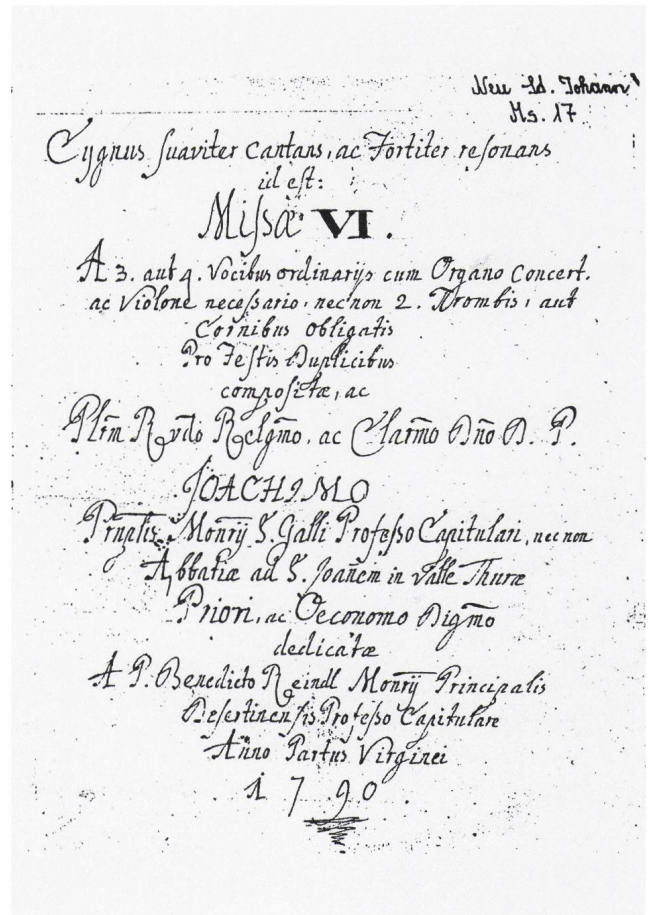 Neu St. Johann
Ms. 17
Cygnus suaviter cantans, ac Fortiter resonans
id est:
Missæ VI.
A 3. aut 4. Vocibus ordinarijs cum Organo Concert.
ac Violone necessario, nec non 2. Trombis, aut
Cornibus obligatis
Pro Festis Duplicibus
compositæ, ac
Plrm̃ Rvdo Relgmo, ac Clarm̃o Dño D. P.
JOACHIMO
Prnplis Monrij S. Galli Professo Capitulari, nec non
Abbatiæ ad S. Joañem in valle Thuræ
Priori, ac Oeconomo Digm̃o
dedicatæ
A P. Benedicto Reindl Monrij Principalis
Desertinensis Professo Capitulare
Anno Partus Virginei
1790